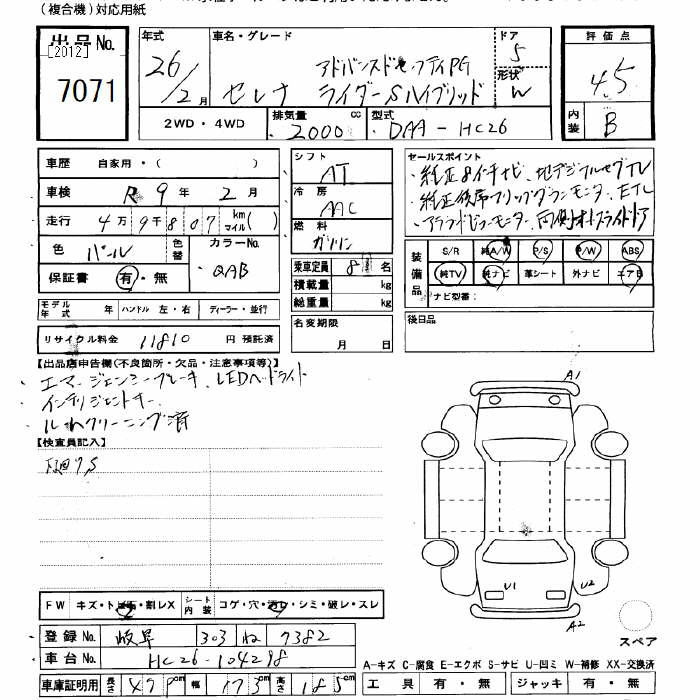 (複合機)対応用紙
出品No.
[2012]
7071
年式
26/2月
車名・グレード
アドバンスドセーフティPG
セレナ ライダーSハイブリッド
ドア
5
形状
W
評価点
4.5
内装
B
2WD・4WD
排気量
2000
cc
型式
DAA-HC26
車歴 自家用・( )
車検 R9年2月
走行 4万9千807 km マイル( )
色 パール 色替
カラーNo.
QAB
保証書 有・無
モデル年式 年 ハンドル 左・右 ディーラー・並行
リサイクル料金 11810 円 預託済
シフト
AT
冷房
AAC
燃料
ガソリン
乗車定員 8 名
積載量 kg
総重量 kg
名変期限
月 日
セールスポイント
・純正8インチナビ、地デジフルセグTV
・純正後席フリップダウンモニタ、ETC
・アラウンドビューモニター、両側オートスライドドア
装備品
S/R 純A/W P/S P/W ABS
純TV 純ナビ 革シート 外ナビ エアB
ナビ型番:
後日品
【出品店申告欄(不良箇所・欠品・注意事項等)】
・エマージェンシーブレーキ、LEDヘッドライト
・インテリジェントキー
・ルームクリーニング済
【検査員記入】
下廻りS
A1
U1
U2
A2
スペア
FW キズ・トビ石・割レX
シート内装 コゲ・穴・汚レ・シミ・破レ・スレ
登録No. 岐阜 303 ね 7382
車台No. HC26-104298
車庫証明用 長さ 479cm 幅 173cm 高さ 185cm
A-キズ C-腐食 E-エクボ S-サビ U-凹ミ W-補修 XX-交換済
工具 有・無 ジャッキ 有・無